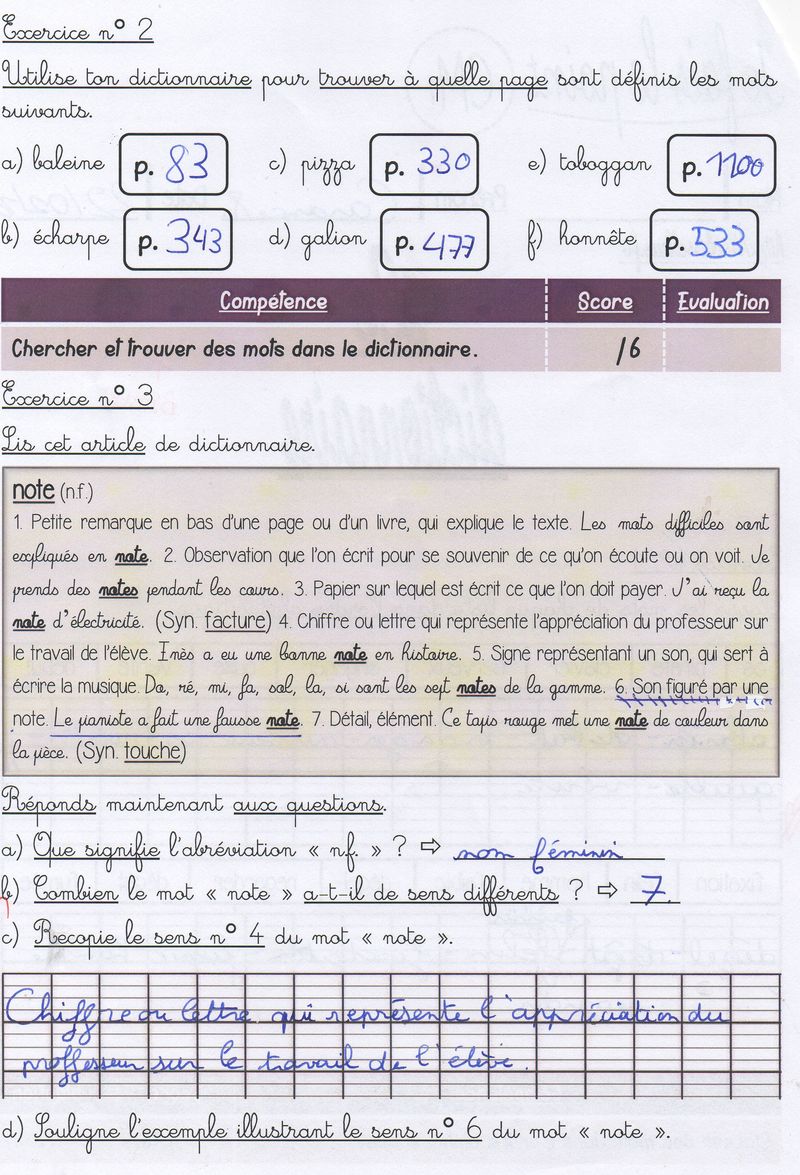 Exercice n° 2
Utilise ton dictionnaire pour trouver à quelle page sont définis les mots
suivants.
a) baleine p. 83 c) pizza p. 330 e) toboggan p. 1100
b) écharpe p. 343 d) galion p. 477 f) honnête p. 533
Compétence Score Evaluation
Chercher et trouver des mots dans le dictionnaire. /6
Exercice n° 3
Lis cet article de dictionnaire.
note (n.f.)
1. Petite remarque en bas d'une page ou d'un livre, qui explique le texte. Les mots difficiles sont
expliqués en note. 2. Observation que l'on écrit pour se souvenir de ce qu'on écoute ou on voit. Je
prends des notes pendant les cours. 3. Papier sur lequel est écrit ce que l'on doit payer. J'ai reçu la
note d'électricité. (Syn. facture) 4. Chiffre ou lettre qui représente l'appréciation du professeur sur
le travail de l'élève. Inès a eu une bonne note en histoire. 5. Signe représentant un son, qui sert à
écrire la musique. Do, ré, mi, fa, sol, la, si sont les sept notes de la gamme. 6. Son figuré par une
note. Le pianiste a fait une fausse note. 7. Détail, élément. Ce tapis rouge met une note de couleur dans
la pièce. (Syn. touche)
Réponds maintenant aux questions.
a) Que signifie l'abréviation « n.f. » ? ⇨ nom féminin
b) Combien le mot « note » a-t-il de sens différents ? ⇨ 7.
c) Recopie le sens n° 4 du mot « note ».
Chiffre ou lettre qui représente l'appréciation du
proffesseur sur le travail de l'élève.
d) Souligne l'exemple illustrant le sens n° 6 du mot « note ».